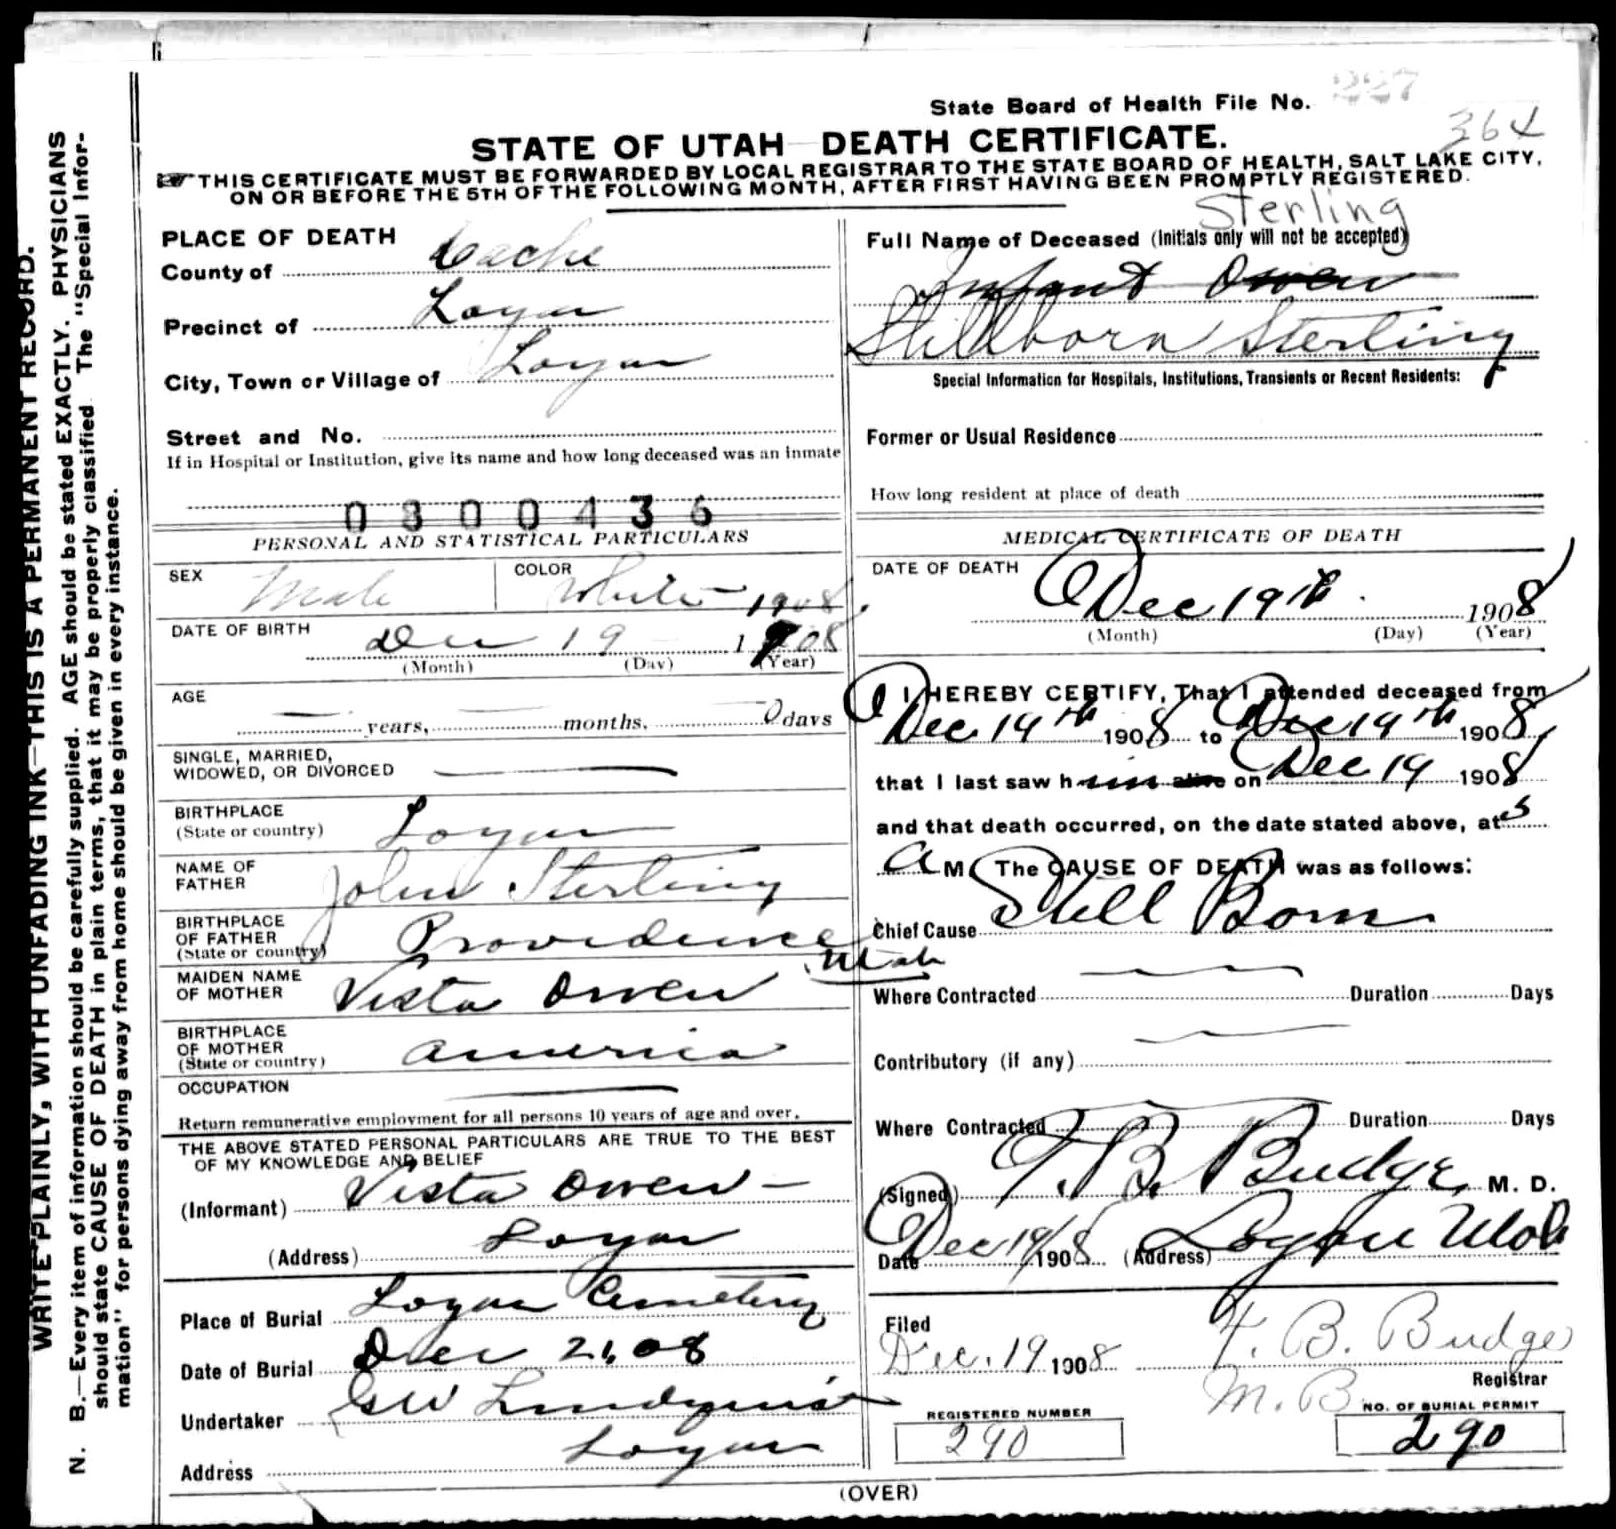 State Board of Health File No. 227
364
STATE OF UTAH—DEATH CERTIFICATE.
THIS CERTIFICATE MUST BE FORWARDED BY LOCAL REGISTRAR TO THE STATE BOARD OF HEALTH, SALT LAKE CITY,
ON OR BEFORE THE 5TH OF THE FOLLOWING MONTH, AFTER FIRST HAVING BEEN PROMPTLY REGISTERED.
WRITE PLAINLY, WITH UNFADING INK—THIS IS A PERMANENT RECORD.
N. B.—Every item of information should be carefully supplied. AGE should be stated EXACTLY. PHYSICIANS
should state CAUSE OF DEATH in plain terms, that it may be properly classified. The "Special Infor-
mation" for persons dying away from home should be given in every instance.
PLACE OF DEATH
County of Cache
Precinct of Logan
City, Town or Village of Logan
Street and No.
If in Hospital or Institution, give its name and how long deceased was an inmate
0300436
PERSONAL AND STATISTICAL PARTICULARS
SEX Male COLOR White
1908.
DATE OF BIRTH Dec 19 1908
(Month) (Day) (Year)
AGE — years, — months, 0 days
SINGLE, MARRIED,
WIDOWED, OR DIVORCED —
BIRTHPLACE
(State or country) Logan
NAME OF
FATHER John Sterling
BIRTHPLACE
OF FATHER
(State or country) Providence
Utah
MAIDEN NAME
OF MOTHER Vista Owen
BIRTHPLACE
OF MOTHER
(State or country) America
OCCUPATION —
Return remunerative employment for all persons 10 years of age and over.
THE ABOVE STATED PERSONAL PARTICULARS ARE TRUE TO THE BEST
OF MY KNOWLEDGE AND BELIEF
(Informant) Vista Owen
(Address) Logan
Place of Burial Logan Cemetery
Date of Burial Dec 21, 08
Undertaker GW Lindquist
Address Logan
Sterling
Full Name of Deceased (Initials only will not be accepted)
Infant Owen
Stillborn Sterling
Special Information for Hospitals, Institutions, Transients or Recent Residents:
Former or Usual Residence
How long resident at place of death
MEDICAL CERTIFICATE OF DEATH
DATE OF DEATH
Dec 19th 1908
(Month) (Day) (Year)
I HEREBY CERTIFY, That I attended deceased from
Dec 19th 1908 to Dec 19th 1908,
that I last saw him alive on Dec 19 1908
and that death occurred, on the date stated above, at 5
A M. The CAUSE OF DEATH was as follows:
Chief Cause Still Born
Where Contracted Duration Days
Contributory (if any)
Where Contracted Duration Days
(Signed) T. B. Budge, M. D.
Date Dec 19/1908 (Address) Logan Utah
Filed
Dec. 19 1908 T. B. Budge
Registrar
M. B.
REGISTERED NUMBER
290
NO. OF BURIAL PERMIT
290
(OVER)